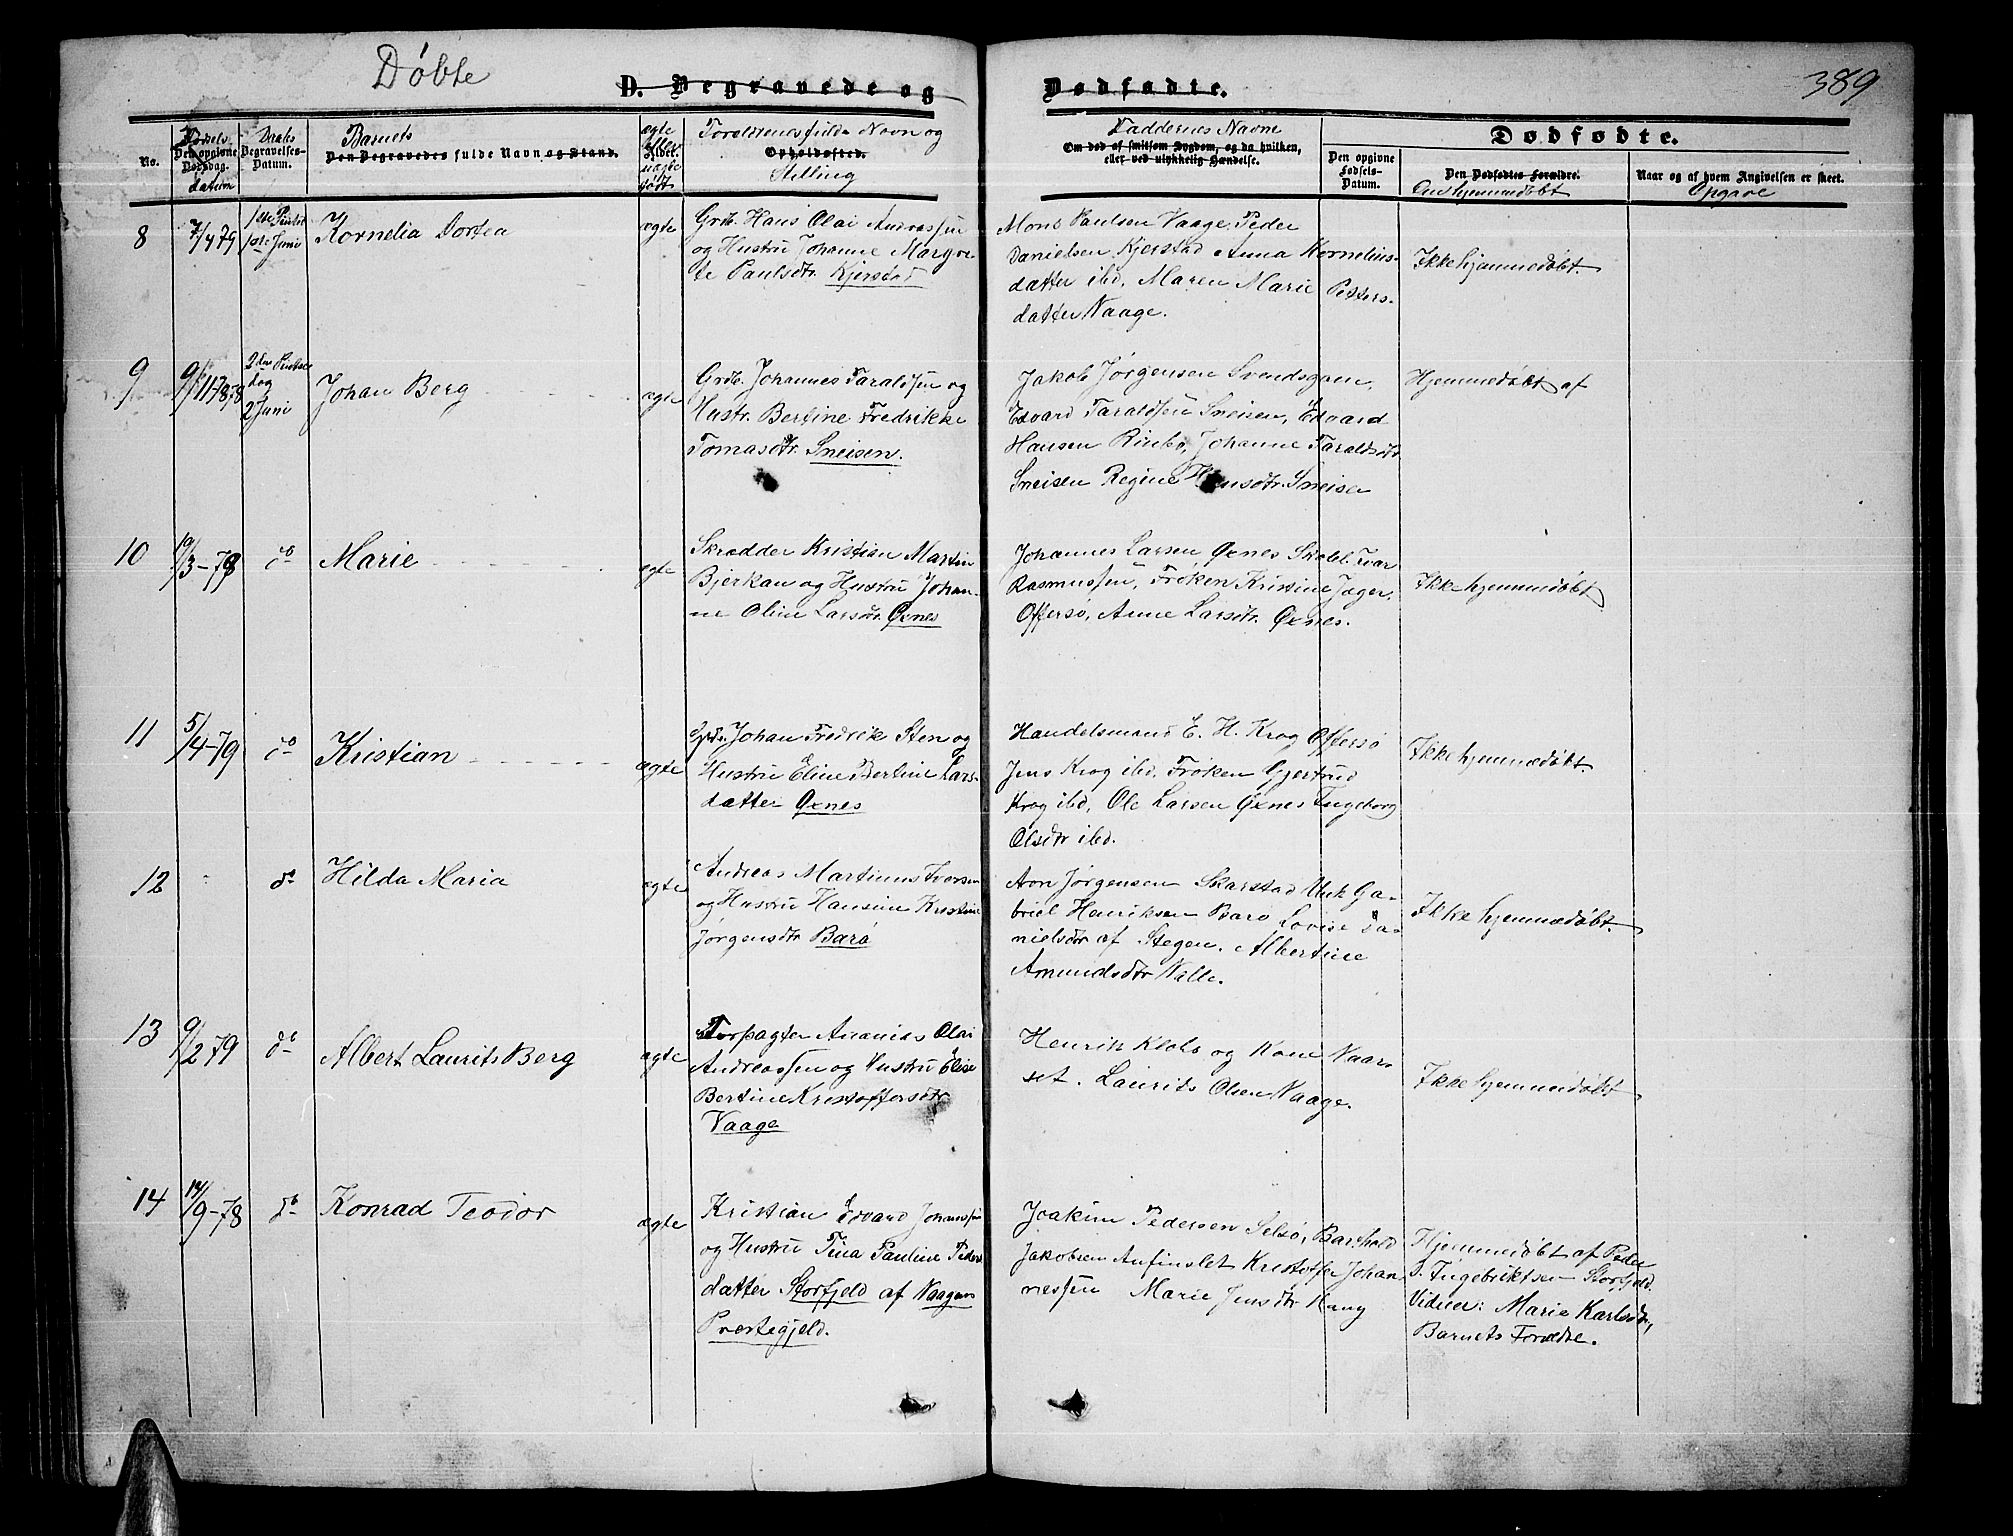 Døbte
D. Begravede og
Dødfødte.
389
No.
Fødsels-
Den opgivne
Dødsdag.
datum
Daabs
Begravelses-
Datum.
Barnets
Den Begravedes fulde Navn og Stand.
ægte
eller
uægte
født
Forældrenes fulde Navn og
Opholdssted.
Stilling
Faddernes Navne
Om død af smitsom Sygdom, og da hvilken,
eller ved ulykkelig Hændelse.
Dødfødte.
Den opgivne
Fødsels-
Datum.
Den Dødfødtes Forældre.
Om hjemmedøbt
Naar og af hvem Angivelsen er skeet.
Opgave
8
7/4 79
1ste Juni
Kornelia Dortea
ægte
Grdb. Hans Olai Andreassen
og Hustru Johanne Margre-
te Paulsdtr. Kjerstad
Mons Paulsen Vaage, Peder
Danielsen Kjerstad Anna Kornelius-
datter ibd, Maren Marie Petters-
datter Vaage.
Ikke hjemmedøbt.
9
9/11 78
2den Pintse
dag
2 Juni
Johan Berg
ægte
Grdb. Johannes Taraldsen og
Hustr. Bertine Fredrikke
Tomasdtr. Sneisen.
Jakob Jørgensen Svendsgam,
Edvard Taraldsen Sneisen, Edvard
Hansen Rinbø, Johanne Taraldsdtr
Sneisen Regine Hansdtr. Sneisen
Hjemmedøbt af
10
10/3-79
do
Marie
ægte
Skrædder Kristian Martin
Bjerkan og Hustru Johan-
ne Oline Larsdtr. Øxnes
Johannes Larsen Øxnes Skolel. Ivar
Rasmussen, Frøken Kristine Jæger,
Offersø, Anne Larsdtr. Øxnes.
Ikke hjemmedøbt
11
5/4-79
do
Kristian
ægte
Grdb. Johan Fredrik Sten og
Hustru Eline Bertine Lars-
datter Øxnes
Handelsmand E. H. Krog Offersø
Jens Krog ibd. Frøken Gjertrud
Krog ibd, Ole Larsen Øxnes Ingeborg
Olsdtr ibd.
Ikke hjemmedøbt.
12
do
Hilda Maria
ægte
Andreas Martinus Iversen
og Hustru Hansine Kristine
Jørgensdtr Barø
Aron Jørgensen Skarstad Unk Ga-
briel Henriksen Barø Lovise Da-
nielsdtr af Stegen. Albertine
Amundsdtr Valle.
Ikke hjemmedøbt.
13
9/2 79
do
Albert Laurits Berg
ægte
Forpagter Ananias Olai
Andreassen og Hustru Elise
Bertine Kristoffersdtr
Vaage
Henrik Klobo og Kone Naar-
set. Laurits Olsen Vaage.
Ikke hjemmedøbt
14
14/9-78
do
Konrad Teodor
ægte
Kristian Edvard Johansen
og Hustru Tina Pauline Peders
datter Storfjeld af Vaagan
Præstegjeld.
Joakim Pedersen Selsø, Barthold
Jakobsen Anfinslet Kristoffer Johan-
nessen Marie Jensdtr Haug
Hjemmedøbt af Peder
S. Ingebriktsen Storfjeld.
Vidner: Marie Karlsdtr,
Barnets Forældre.